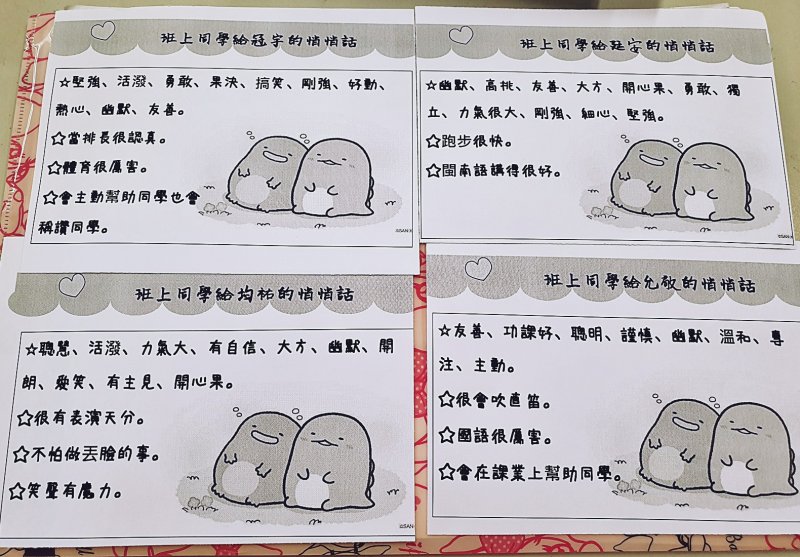 班上同學給冠宇的悄悄話
☆堅強、活潑、勇敢、果決、搞笑、剛強、好動、
熱心、幽默、友善。
☆當排長很認真。
☆體育很厲害。
☆會主動幫助同學也會
稱讚同學。
©SAN-X
班上同學給廷安的悄悄話
☆幽默、高挑、友善、大方、開心果、勇敢、獨
立、力氣很大、剛強、細心、堅強。
☆跑步很快。
☆閩南語講得很好。
©SAN-X
班上同學給均祐的悄悄話
☆聰慧、活潑、力氣大、有自信、大方、幽默、開
朗、愛笑、有主見、開心果。
☆很有表演天分。
☆不怕做丟臉的事。
☆笑聲有魔力。
©SAN-X
班上同學給允敬的悄悄話
☆友善、功課好、聰明、謹慎、幽默、溫和、專
注、主動。
☆很會吹直笛。
☆國語很厲害。
☆會在課業上幫助同學。